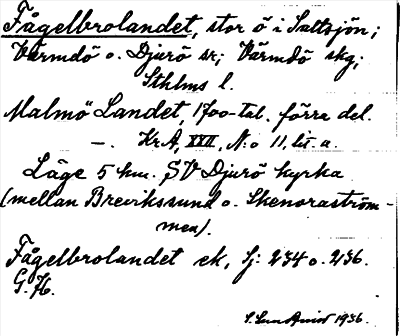 Fågelbrolandet, stor ö i Saltsjön;
Värmdö o. Djurö sr; Värmdö skg;
Sthlms l.
Malmö Landet, 1700-tal. förra del.
—. KrA, XVII, N:o 11, lit. a.
Läge 5 km. SV Djurö kyrka
(mellan Brevikssund o. Skenoraström-
men).
Fågelbrolandet ek, Sj: 234 o. 236.
G. H.
1936.